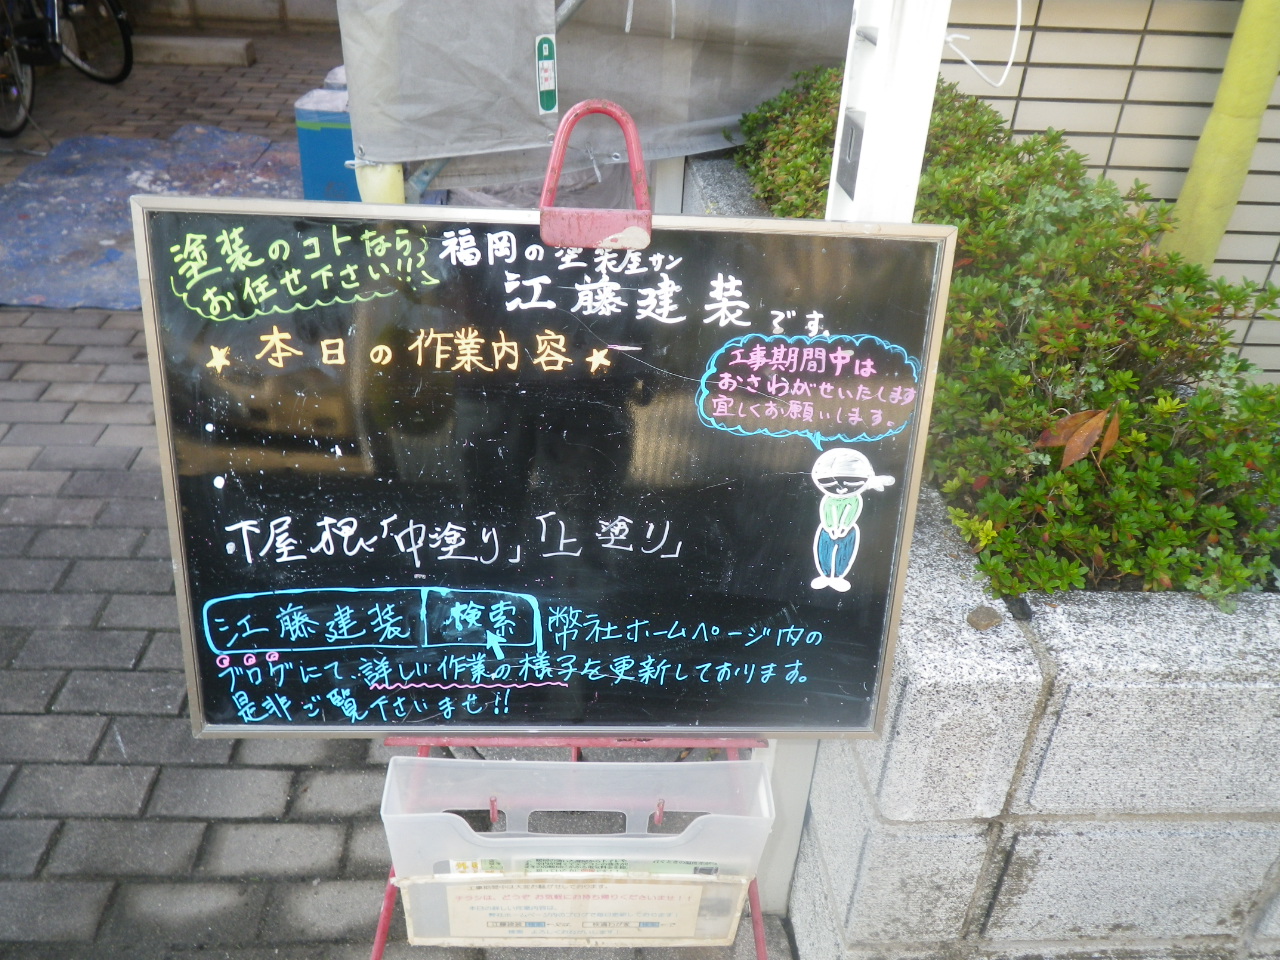 塗装のコトなら
お任せ下さい!!
福岡の塗装屋サン
江藤建装です。
★本日の作業内容★
工事期間中は...
おさわがせいたします
宜しくお願いします。
下屋根「中塗り」「上塗り」
江藤建装 検索 幣社ホームページ内の
ブログにて..詳しい作業の様子を更新しております。
是非ご覧下さいませ!!